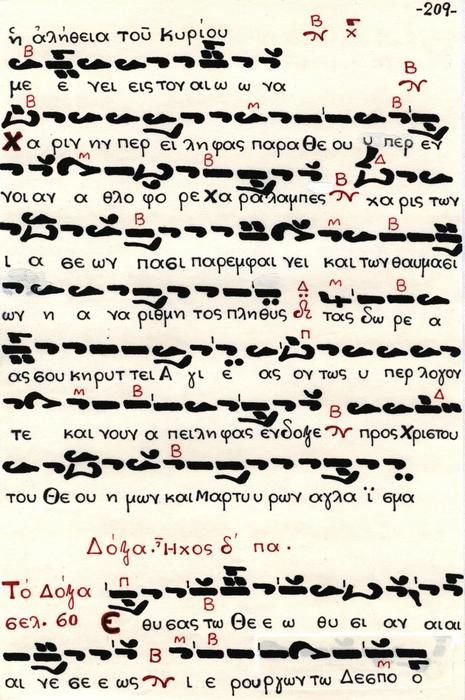 -209-
ἡ ἀλήθεια τοῦ Κυρίου
με ε νει εις τον αι ω ω να
Χα ριν ην περ ει λη φας παρα Θε ου υ περ εν
νοι αν α θλο φο ρε Χα ρα λαμπες χα ρις των
ι α σε ων πασι παρεμφαι νει και των θαυμασι
ων η α να ριθμη τος πληθυς τας δω ρε α
ας σου κηρυτ τει Α γι ε ας ον τως υ περ λογον
τε και νουν α πει λη φας ενδοξε προς Χριστου
του Θε ου η μων και Μαρτυ υ ρων αγλα ϊ σμα
Δόξα. Ἦχος δ´ πα.
Τὸ Δόξα Ε θυ σας τω Θε ε ω θυ σι αν αι αι
σελ. 60
αι νε σε ε ως ι ε ρουργων τω Δεσπο ο